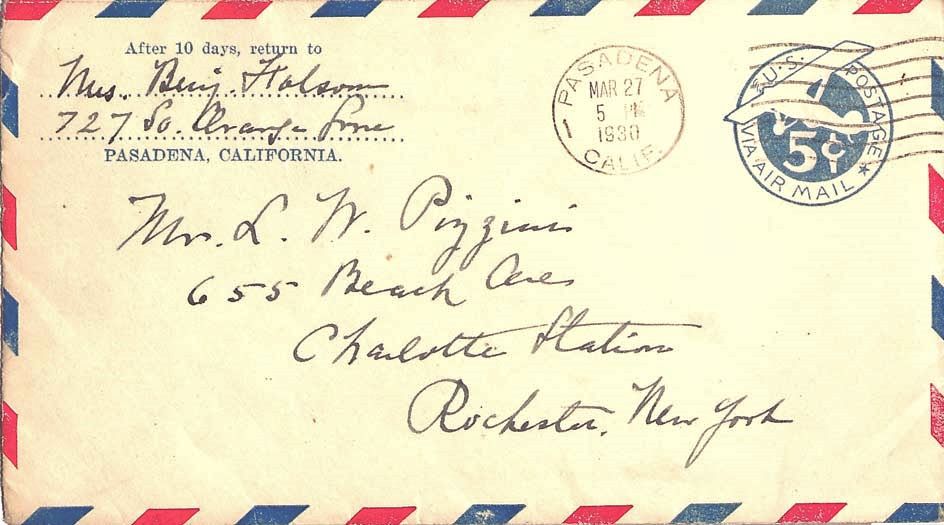 After 10 days, return to
Mrs. Benj. Folsom
727 So. Orange Grove
PASADENA, CALIFORNIA.
PASADENA
MAR 27
5 PM
1930
CALIF.
1
U.S. POSTAGE
5¢
VIA AIR MAIL
Mr. L. W. Pizzini
655 Beach Ave
Charlotte Station
Rochester, New York